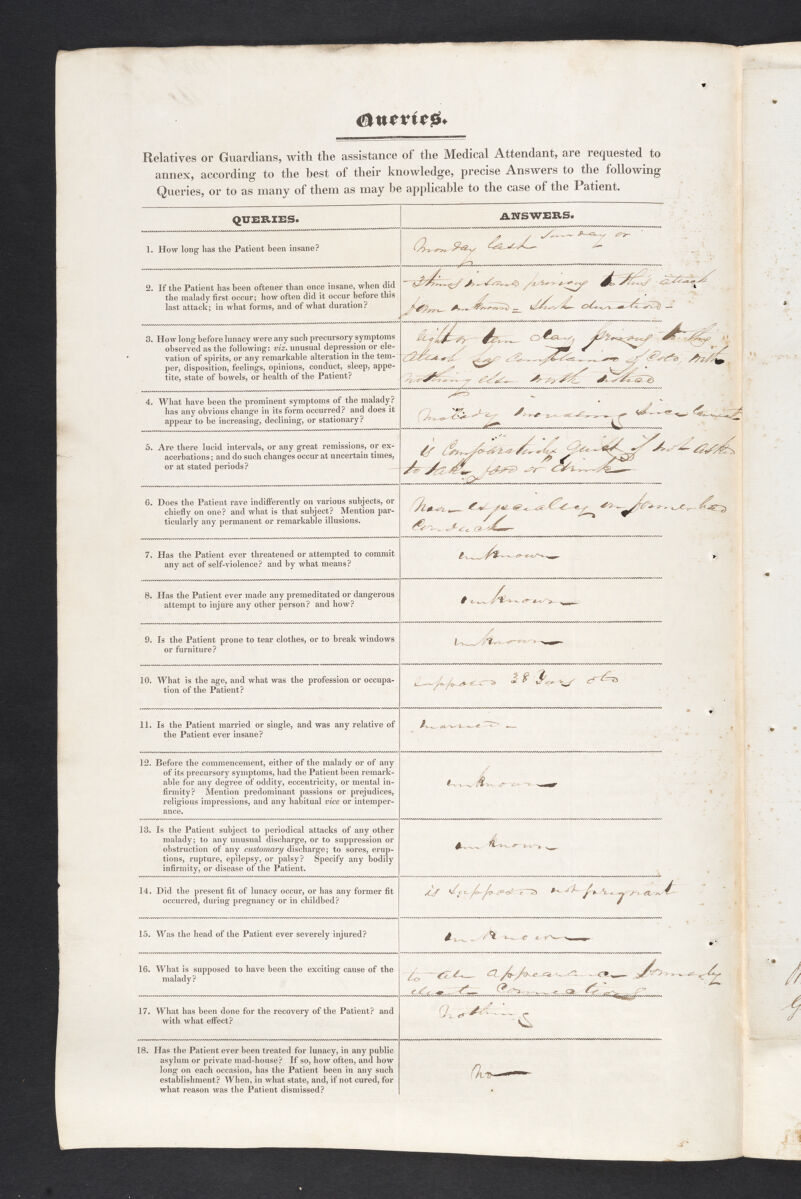 Queries.
Relatives or Guardians, with the assistance of the Medical Attendant, are requested to
annex, according to the best of their knowledge, precise Answers to the following
Queries, or to as many of them as may be applicable to the case of the Patient.
QUERIES.
ANSWERS.
1. How long has the Patient been insane?
Sunday or
Monday last
2. If the Patient has been oftener than once insane, when did
the malady first occur; how often did it occur before this
last attack; in what forms, and of what duration?
3 times insane previous to this attack
form unknown = short duration =
3. How long before lunacy were any such precursory symptoms
observed as the following: viz. unusual depression or ele-
vation of spirits, or any remarkable alteration in the tem-
per, disposition, feelings, opinions, conduct, sleep, appe-
tite, state of bowels, or health of the Patient?
eight or ten days previous to this
attack complained of Cold, with
nothing else worth notice
4. What have been the prominent symptoms of the malady?
has any obvious change in its form occurred? and does it
appear to be increasing, declining, or stationary?
Malady increasing since
5. Are there lucid intervals, or any great remissions, or ex-
acerbations; and do such changes occur at uncertain times,
or at stated periods?
is Comparatively quiet if not asked
to take food or drink
6. Does the Patient rave indifferently on various subjects, or
chiefly on one? and what is that subject? Mention par-
ticularly any permanent or remarkable illusions.
especially on former bad
Conduct
7. Has the Patient ever threatened or attempted to commit
any act of self-violence? and by what means?
unknown
8. Has the Patient ever made any premeditated or dangerous
attempt to injure any other person? and how?
unknown
9. Is the Patient prone to tear clothes, or to break windows
or furniture?
unknown
10. What is the age, and what was the profession or occupa-
tion of the Patient?
supposed 38 Years old
11. Is the Patient married or single, and was any relative of
the Patient ever insane?
married -
12. Before the commencement, either of the malady or of any
of its precursory symptoms, had the Patient been remark-
able for any degree of oddity, eccentricity, or mental in-
firmity? Mention predominant passions or prejudices,
religious impressions, and any habitual vice or intemper-
ance.
unknown
13. Is the Patient subject to periodical attacks of any other
malady; to any unusual discharge, or to suppression or
obstruction of any customary discharge; to sores, erup-
tions, rupture, epilepsy, or palsy? Specify any bodily
infirmity, or disease of the Patient.
unknown
14. Did the present fit of lunacy occur, or has any former fit
occurred, during pregnancy or in childbed?
is supposed not pregnant
15. Was the head of the Patient ever severely injured?
unknown
16. What is supposed to have been the exciting cause of the
malady?
to all appearance
Connections
17. What has been done for the recovery of the Patient? and
with what effect?
Nothing
18. Has the Patient ever been treated for lunacy, in any public
asylum or private mad-house? If so, how often, and how
long on each occasion, has the Patient been in any such
establishment? When, in what state, and, if not cured, for
what reason was the Patient dismissed?
No